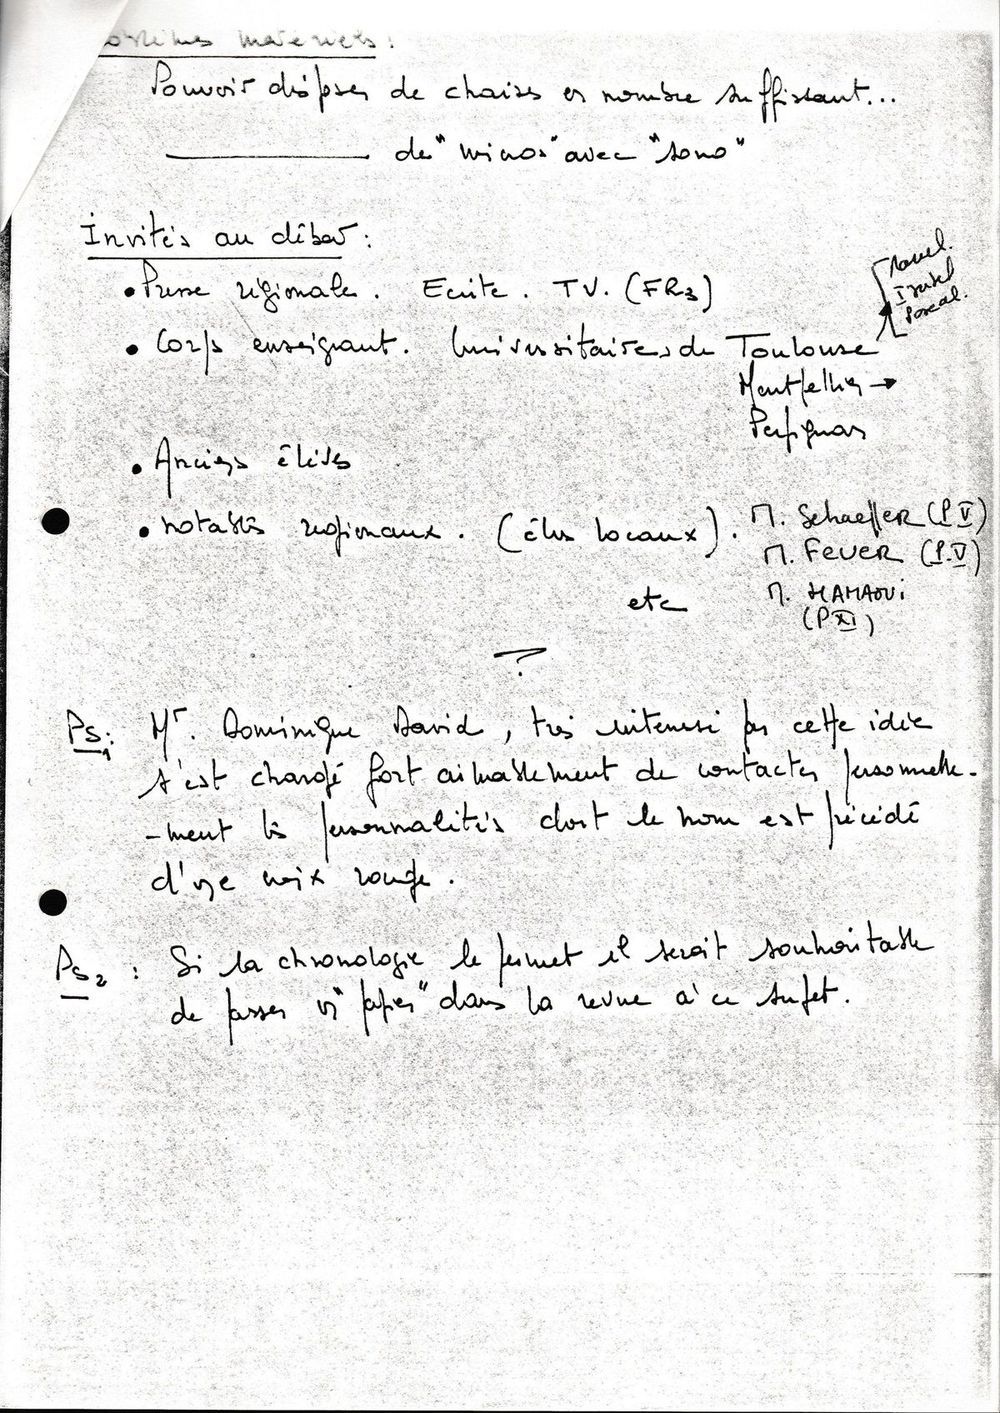 matériels :
Pouvoir disposer de chaises en nombre suffissant...
de "micros" avec "sono"
Invités au débat :
• Presse régionale. Ecrite. TV. (FR3)
• Corps enseignant. Universitaires de Toulouse
Montpellier →
Perpignan
• Anciens élèves
• notables régionaux. (élus locaux). M. Schaeffer (P V)
M. FEUER (P.V)
etc M. HAMAOUi
(P XI)
?
Ps1 : Mr. Dominique David, très intéressé par cette idée
s'est chargé fort aimablement de contacter personnelle-
-ment les personnalités dont le nom est précédé
d'une croix rouge.
Ps2 : Si la chronologie le permet il serait souhaitable
de passer un "papier" dans la revue à ce sujet.